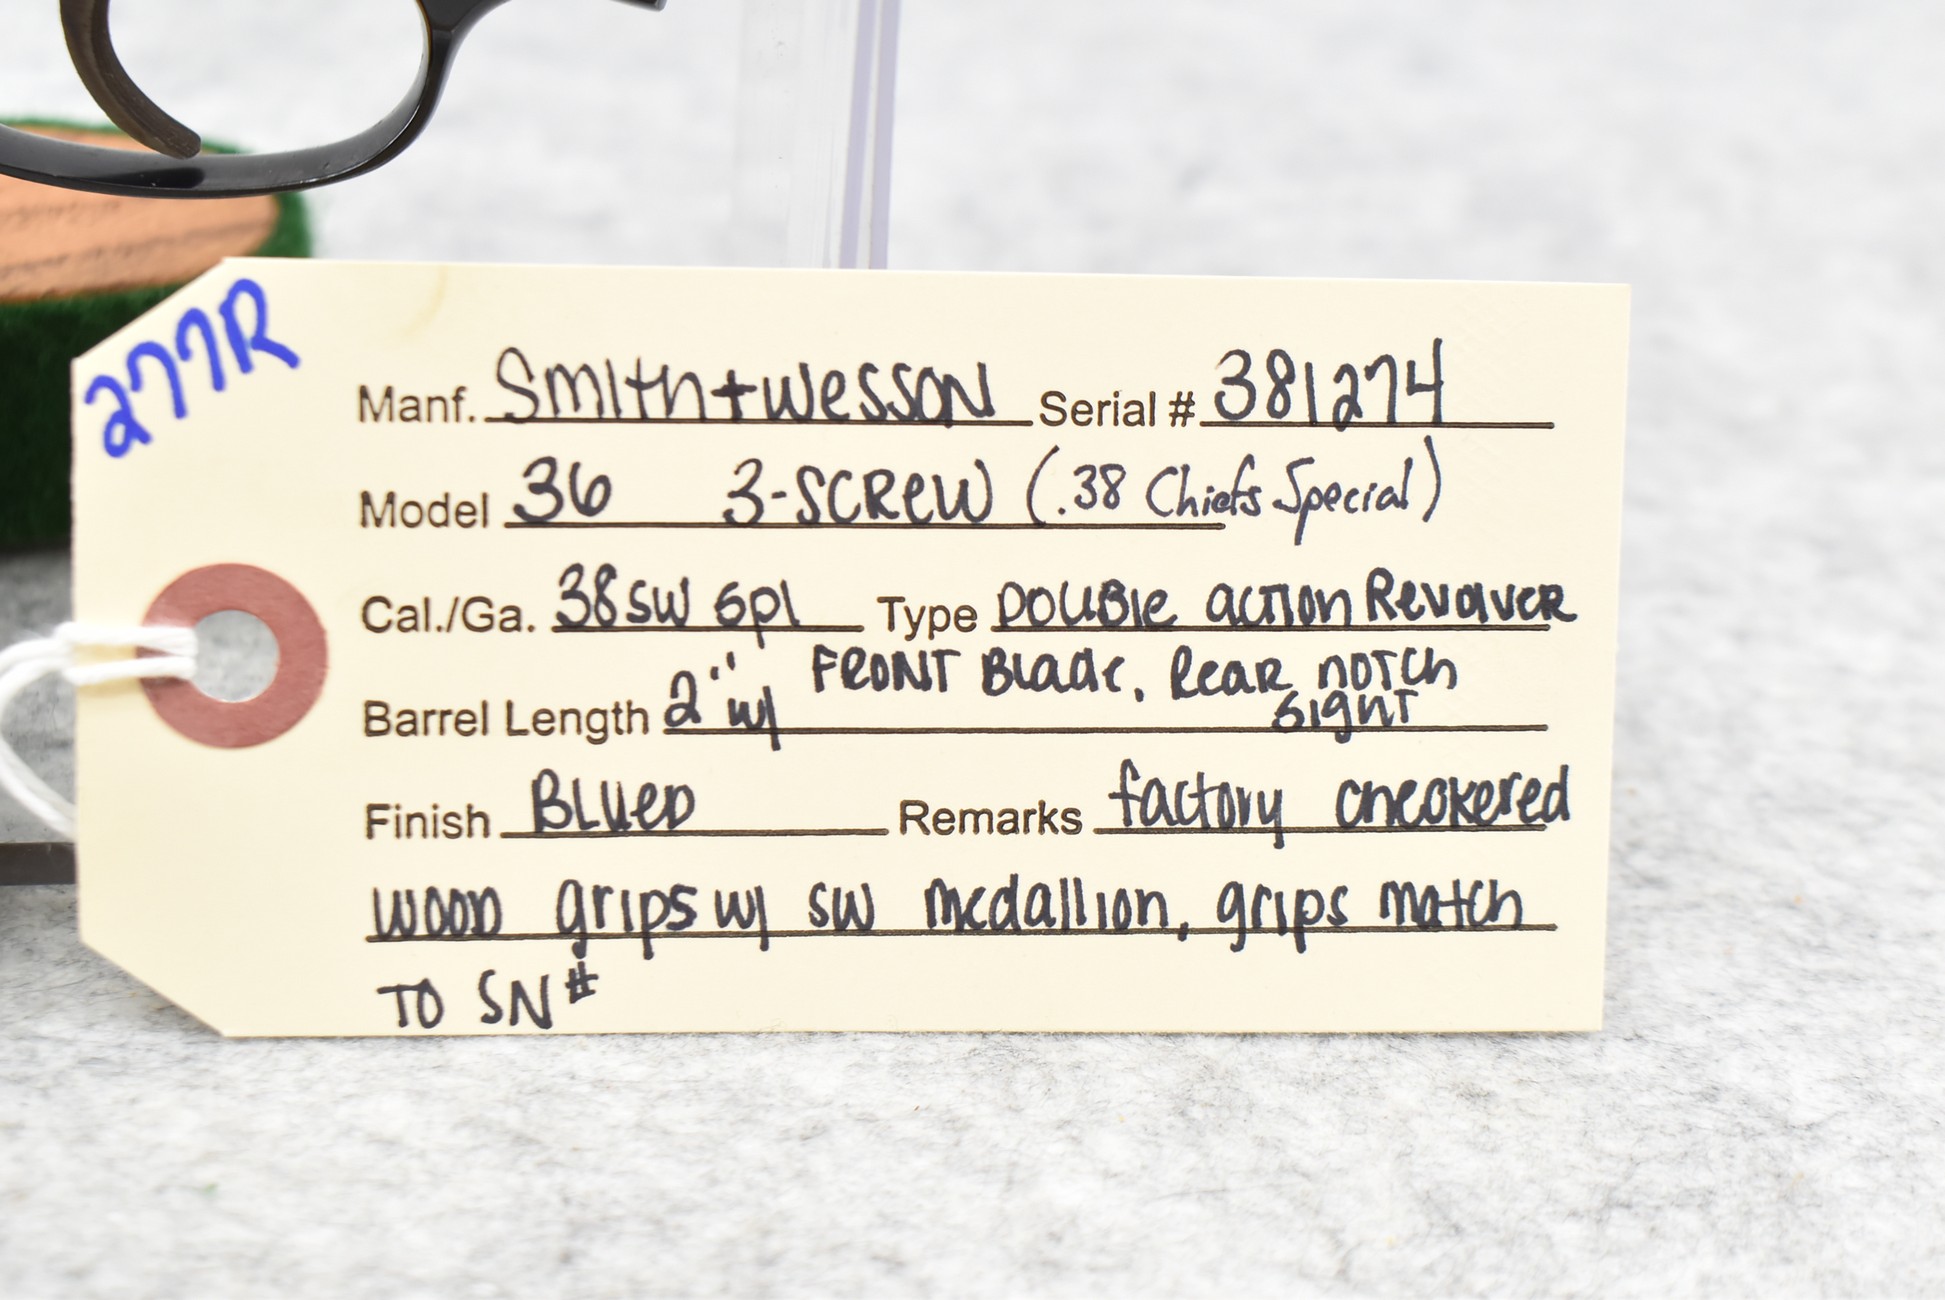 277R
Manf. Smith + Wesson Serial # 381274
Model 36 3-SCREW (.38 Chiefs Special)
Cal./Ga. 38 SW Spl Type Double action Revolver
Barrel Length 2" w/ FRONT Blade, Rear notch
sight
Finish BLUED Remarks factory checkered
wood grips w/ SW medallion, grips match
TO SN#